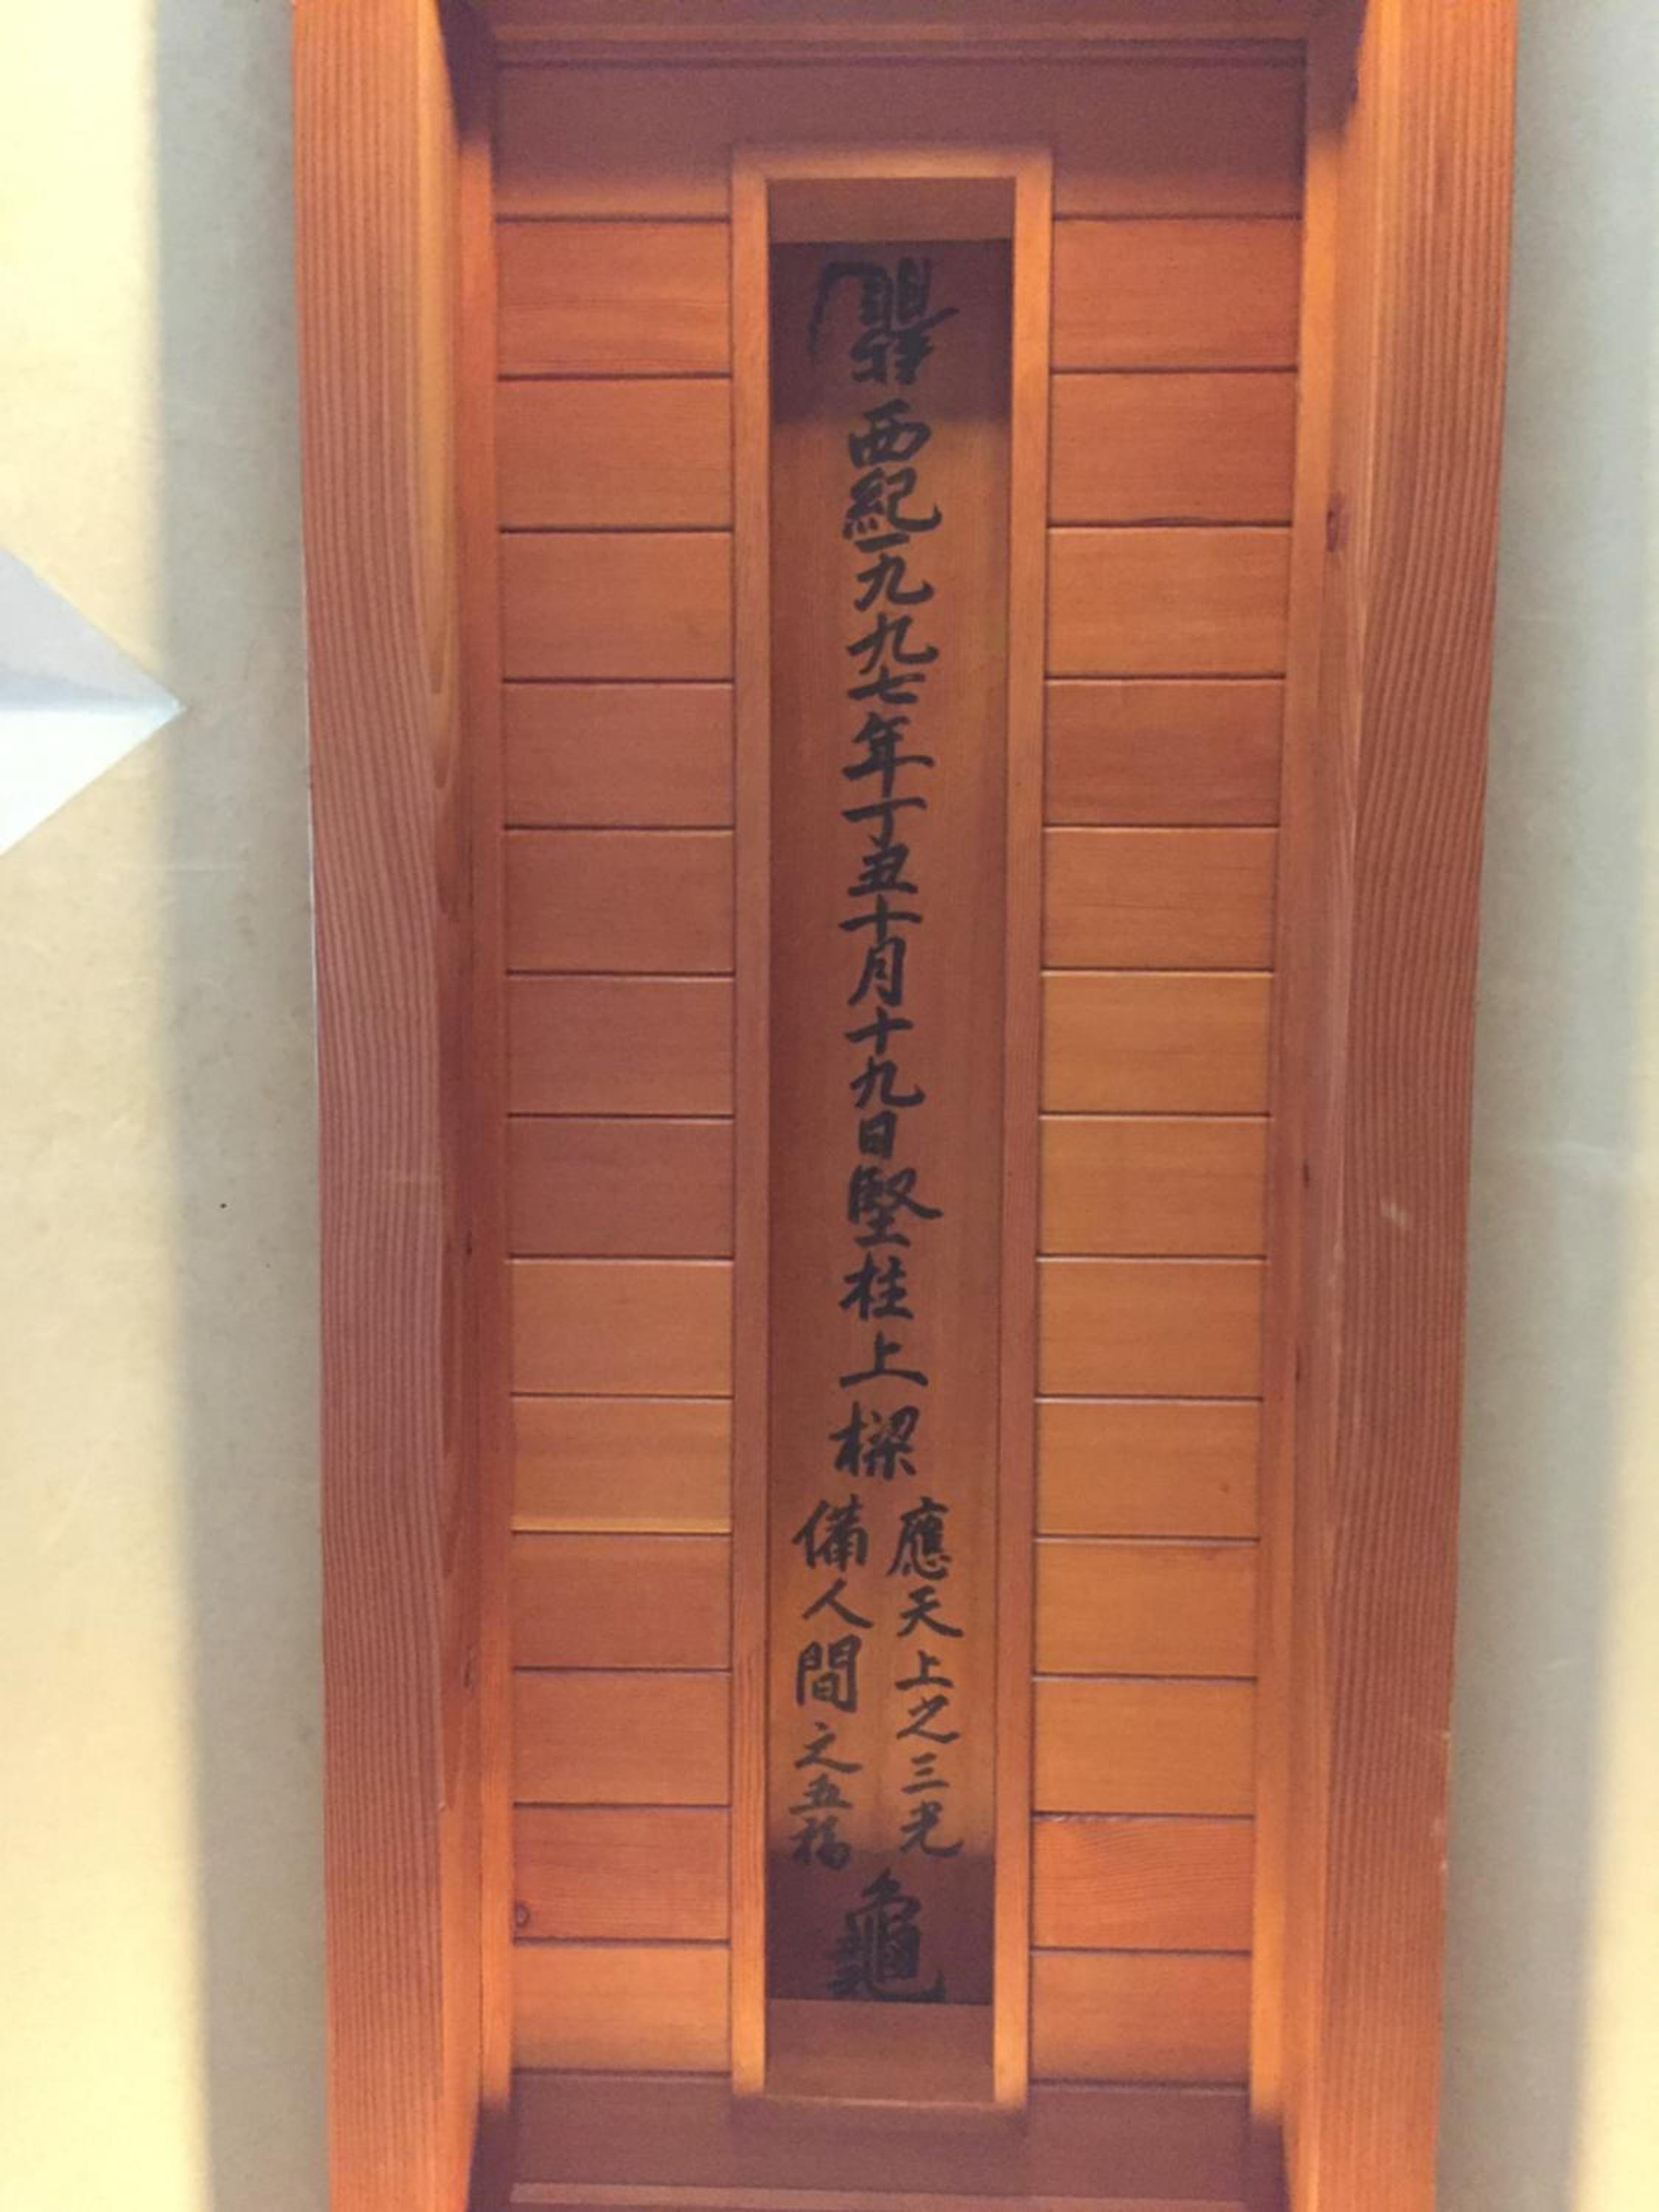 龍
西紀一九九七年丁丑十月十九日竪柱上樑
應天上之三光
備人間之五福
龜